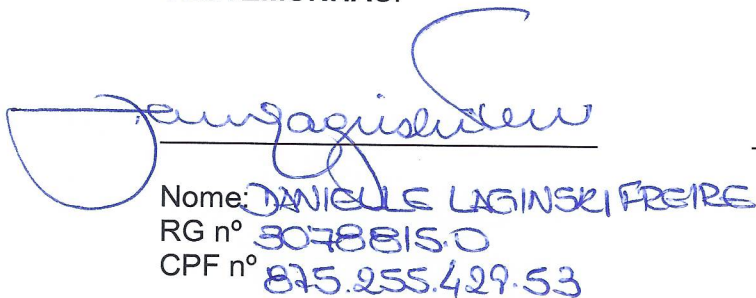 Nome: DANIELLE LAGINSKI FREIRE
RG nº 3078815.0
CPF nº 875.255.429.53